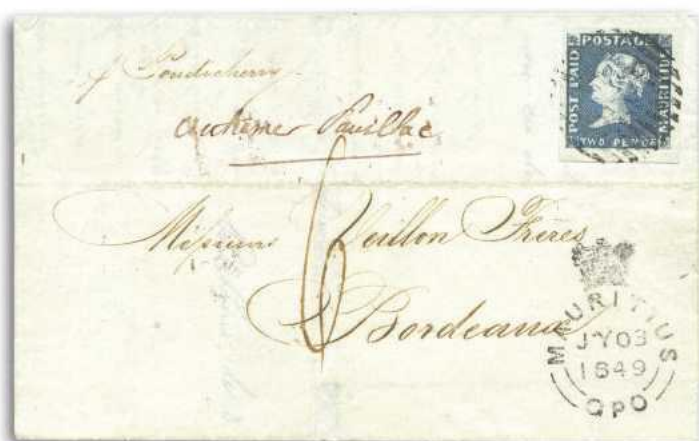 POSTAGE
POST PAID
MAURITIUS
TWO PENCE
p Pondicherry
outremer Pauillac
6
Messieurs Veillon Frères
Bordeaux
MAURITIUS
JY 03
1849
GPO